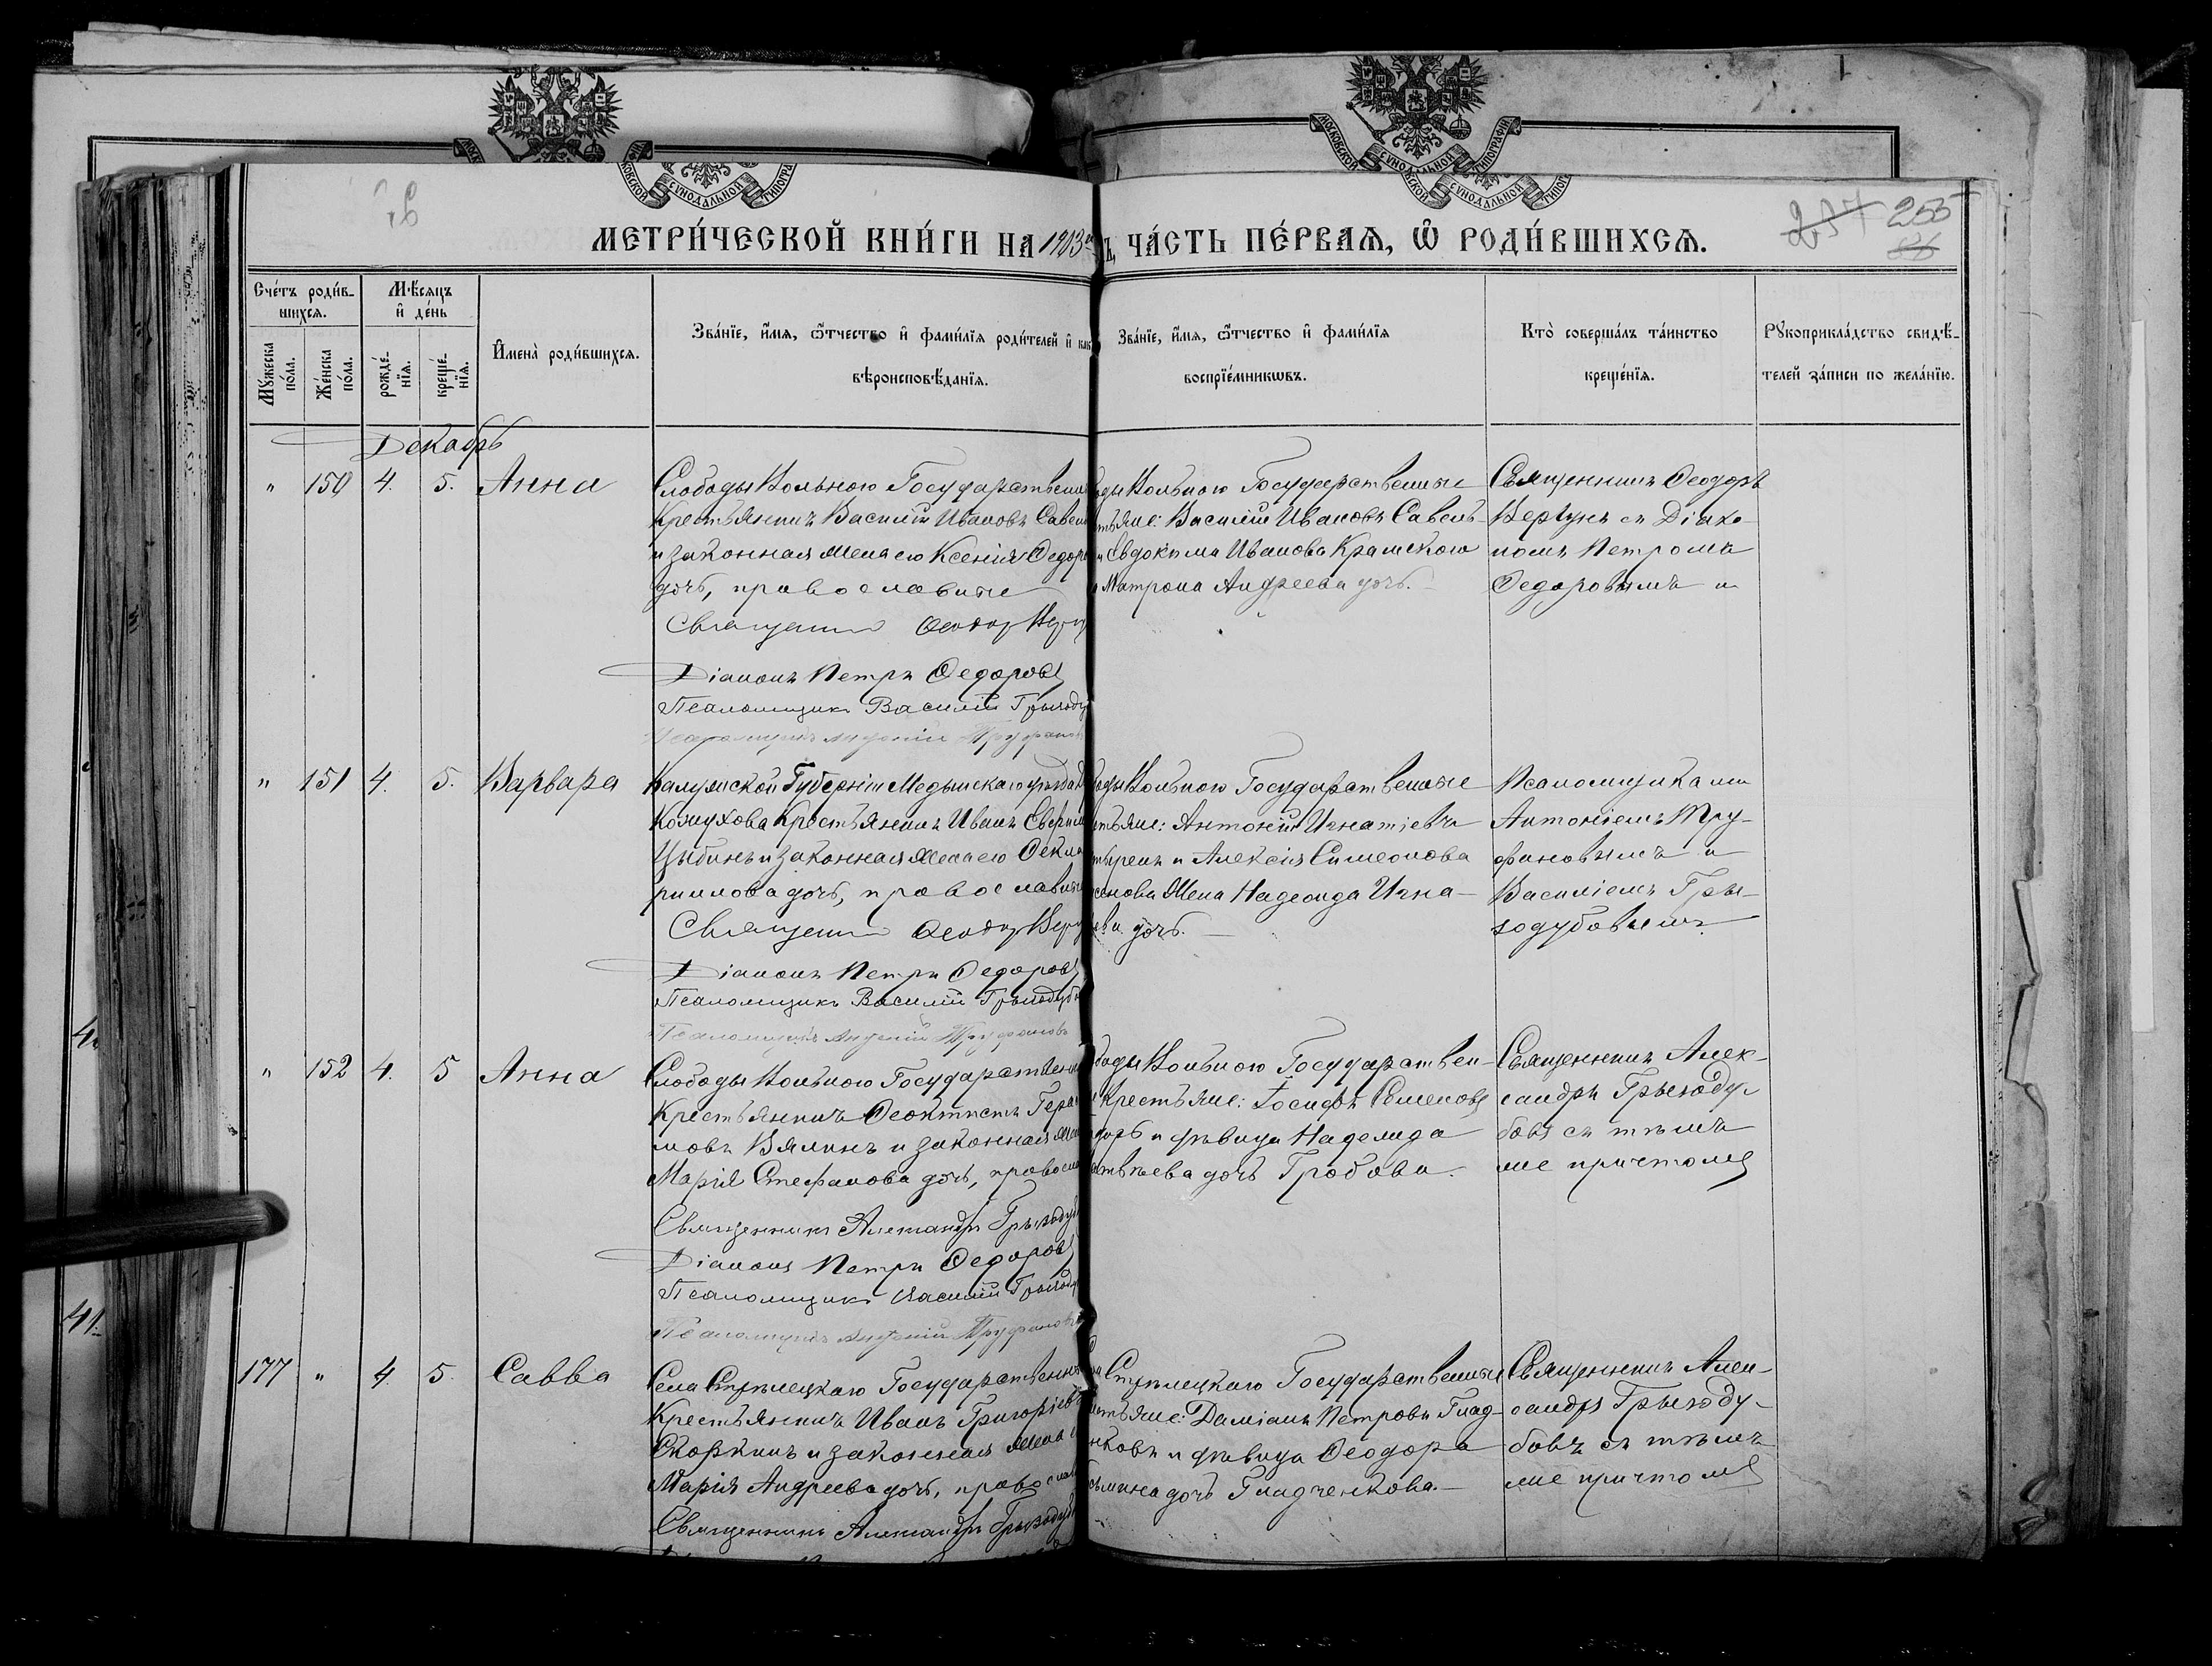 МОСКОВСКОЙ СУНОДАЛЬНОЙ ТИПОГРАФІИ
КОВСКОЙ СУНОДАЛЬНОЙ ТИПОГРА
255
МЕТРИ́ЧЕСКОЙ КНИ́ГИ НА 1903 ЧА́СТЬ ПЕ́РВАЯ, Ѿ РОДИ́ВШИХСЯ.
Сче́тъ роди́в-
шихся.
Мѣ́сяцъ
и҆ де́нь
Мꙋ́жеска по́ла.
Же́нска по́ла.
рожде́-нїя.
креще́-нїя.
И҆мена̀ роди́вшихся.
Зва́нїе, и҆́мя, ѻ҆́тчество и҆ фами́лїя роди́телей и҆
вѣроисповѣ́данїя.
Зва́нїе, и҆́мя, ѻ҆́тчество и҆ фами́лїя
воспрїе́мникѡвъ.
Кто̀ соверша́лъ та́инство
креще́нїя.
Рꙋкоприкла́дство свидѣ́-
телей за́писи по жела́нїю.
Декабрь
" 150 4. 5. Анна
Слободы Вольною Государствен
Крестьянинъ Василій Ивановъ Савел
и законная жена его Ксенія Федор
дочь, православные
Священник Феодор
Діаконъ Петръ Федоровъ
Псаломщикъ Василій Грызоду
Псаломщикъ Антоній Труфанов
ды Вольною Государственные
тьяне: Василій Ивановъ Савель-
и Евдокима Иванова Крамского
Матрона Андреева дочь.
Священникъ Феодоръ
Вергунъ съ Діако-
номъ Петромъ
Федоровымъ и
" 151 4. 5. Варвара
Калужской Губерніи Медынскаго уѣзда
Кожухова Крестьянинъ Иванъ
Цыбинъ и законная жена его Фекла
риллова дочь, православны
Священник Феодор Вергу
Діаконъ Петръ Федоровъ
Псаломщикъ Василій Грызодубо
Псаломщикъ Антоній Труфановъ
оды Вольною Государственные
тьяне: Антоній Игнатіевъ
тыренъ и Алексія Симеонова
жена Надежда Игна-
ева дочь.
Псаломщиками
Антоніемъ Тру-
фановымъ и
Василіемъ Гры-
зодубовымъ
" 152 4. 5 Анна
Слободы Вольною Государствен
Крестьянинъ Феоктистъ Гера
мовъ Вялинъ и законная жен
Марія Стефанова дочь, правосла
Священникъ Александръ Грызоду
Діаконъ Петръ Федоровъ
Псаломщикъ Василій Грызоду
Псаломщикъ Антоній Труфановъ
боды Вольною Государствен-
Крестьяне: Іосифъ Семеновъ
и дѣвица Надежда
твѣева дочь Гробова.
Священникъ Алек-
сандръ Грызоду-
бовъ съ тѣмъ
же причтомъ
177 " 4. 5. Савва
Села Стрѣлецкаго Государственн
Крестьянинъ Иванъ Григоріевъ
Скоркинъ и законная жена
Марія Андреева дочь, правосла
Священникъ Александръ Грызоду
Стрѣлецкаго Государственные
стьяне: Даміанъ Петровъ Глад-
нковъ и дѣвица Феодора
зьмина дочь Гладченкова.
Священникъ Алек-
сандръ Грызоду-
бовъ съ тѣмъ
же причтомъ
41.